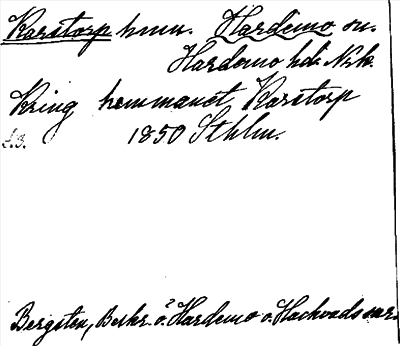 Karstorp hmn. Hardemo sn.
Hardemo hd. Nrk.
Kring hemmanet Karstorp
1850 Sthlm.
Bergsten, Beskr. ö. Hardemo o. Hackvads snr.